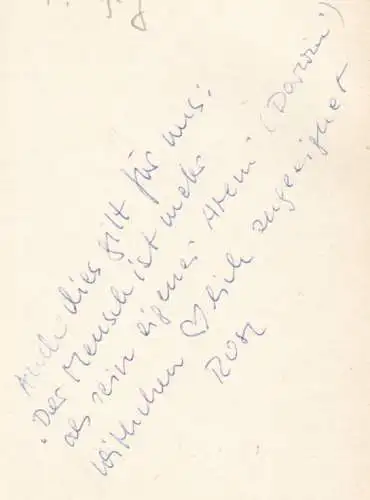 Auch dies gilt für uns:
"Der Mensch ist mehr
als sein eigenes Atem" (Darwin!)
♡lich zugeeignet
Rosi